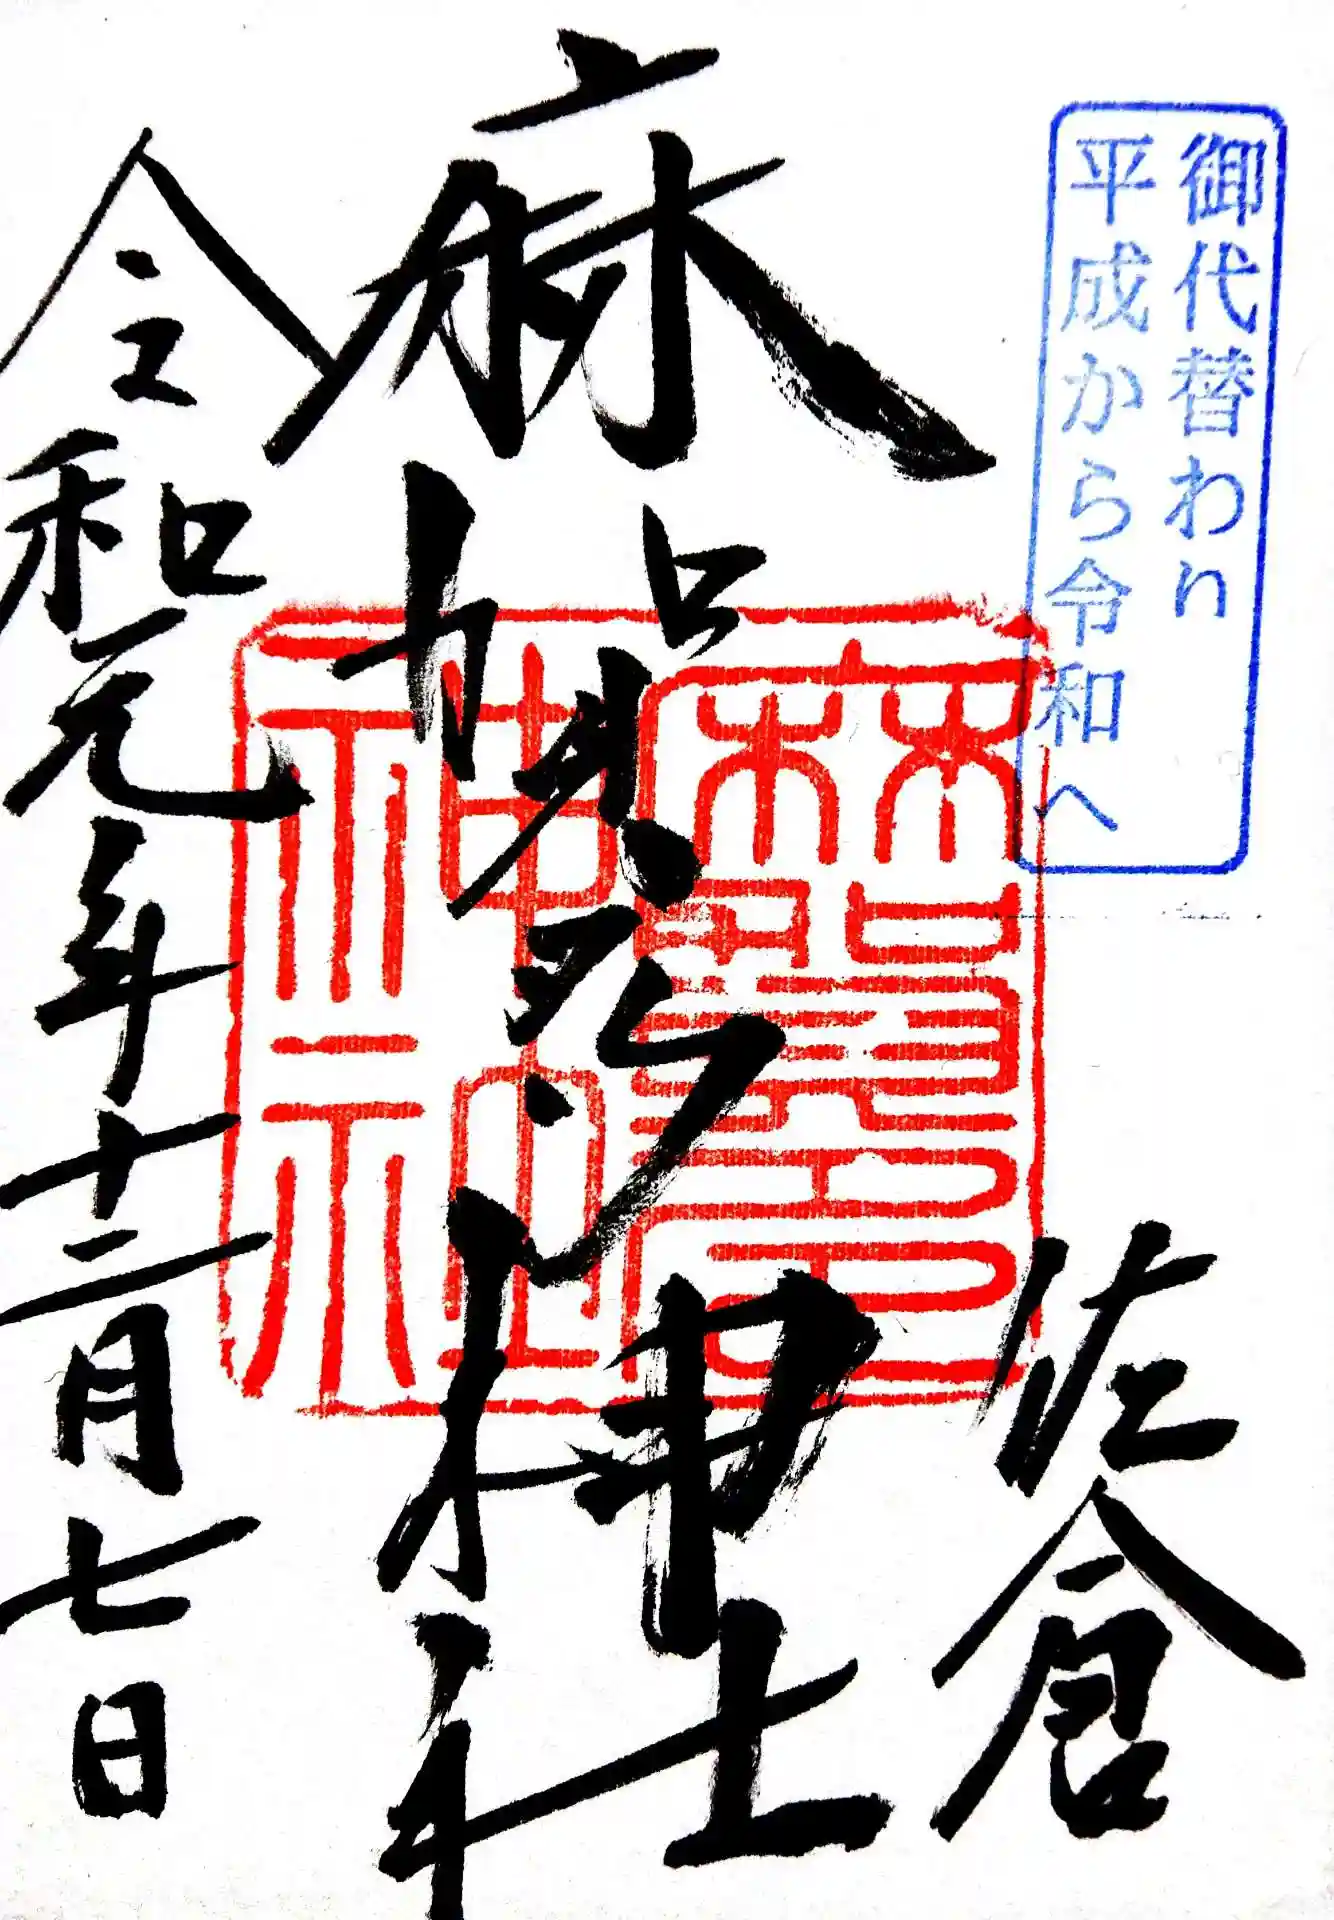 御代替わり
平成から令和へ
佐倉
麻賀多神社
麻賀多神社
令和元年十二月七日